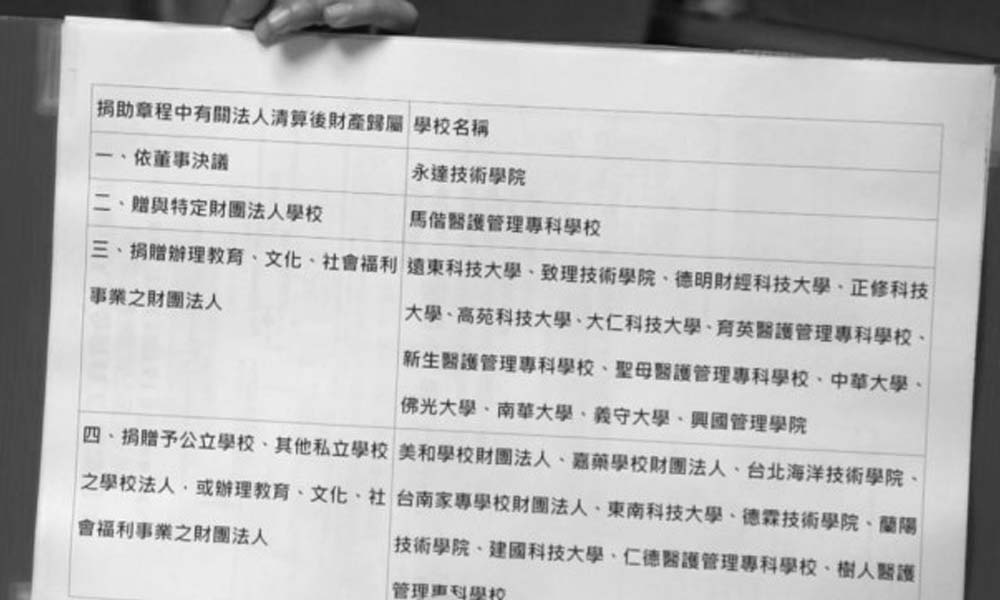 捐助章程中有關法人清算後財產歸屬 學校名稱
一、依董事決議 永達技術學院
二、贈與特定財團法人學校 馬偕醫護管理專科學校
三、捐贈辦理教育、文化、社會福利
事業之財團法人
遠東科技大學、致理技術學院、德明財經科技大學、正修科技
大學、高苑科技大學、大仁科技大學、育英醫護管理專科學校、
新生醫護管理專科學校、聖母醫護管理專科學校、中華大學、
佛光大學、南華大學、義守大學、興國管理學院
四、捐贈予公立學校、其他私立學校
之學校法人，或辦理教育、文化、社
會福利事業之財團法人
美和學校財團法人、嘉藥學校財團法人、台北海洋技術學院、
台南家專學校財團法人、東南科技大學、德霖技術學院、蘭陽
技術學院、建國科技大學、仁德醫護管理專科學校、樹人醫護
管理專科學校